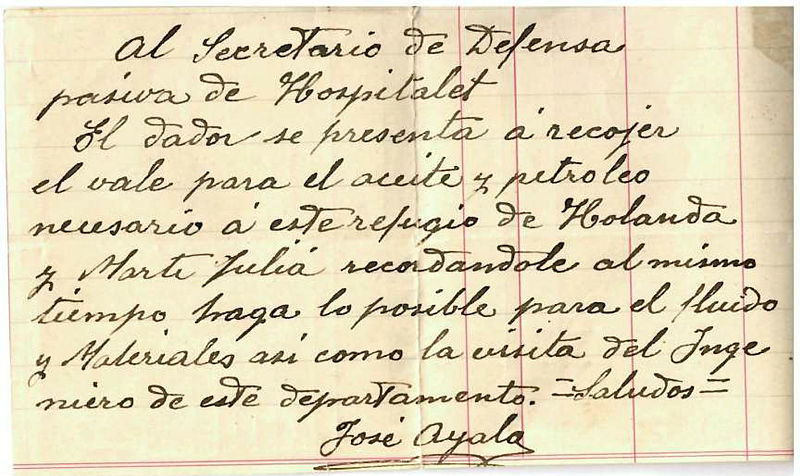 Al Secretario de Defensa
pasiva de Hospitalet
El dador se presenta á recojer
el vale para el aceite y petroleo
necesario á este refugio de Holanda
y Marti Juliá recordandole al mismo
tiempo haga lo posible para el fluido
y Materiales asi como la visita del Inge
niero de este departamento. =Saludos=
José Ayala